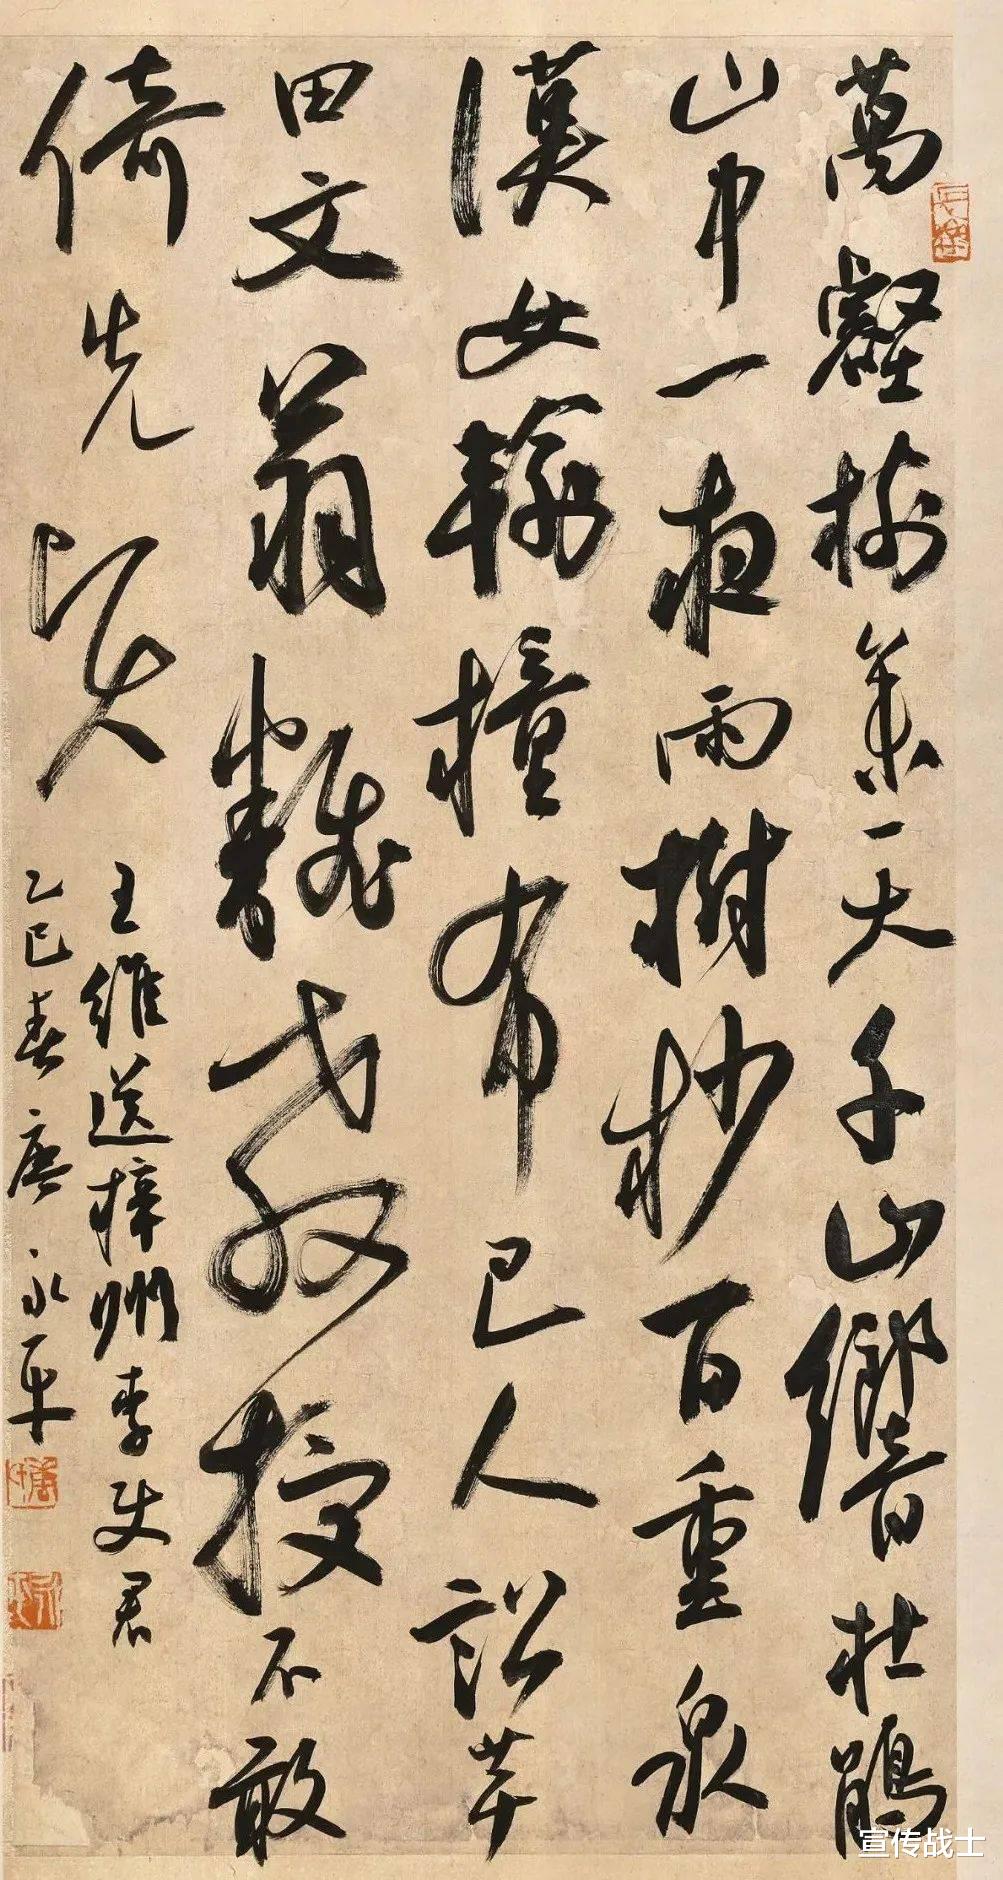 萬壑樹參天千山響杜鵑
山中一夜雨樹杪百重泉
漢女輸橦布巴人訟芋
田文翁翻教授不敢
倚先賢
王維送梓州李使君
乙巳春唐永平
宣传战士